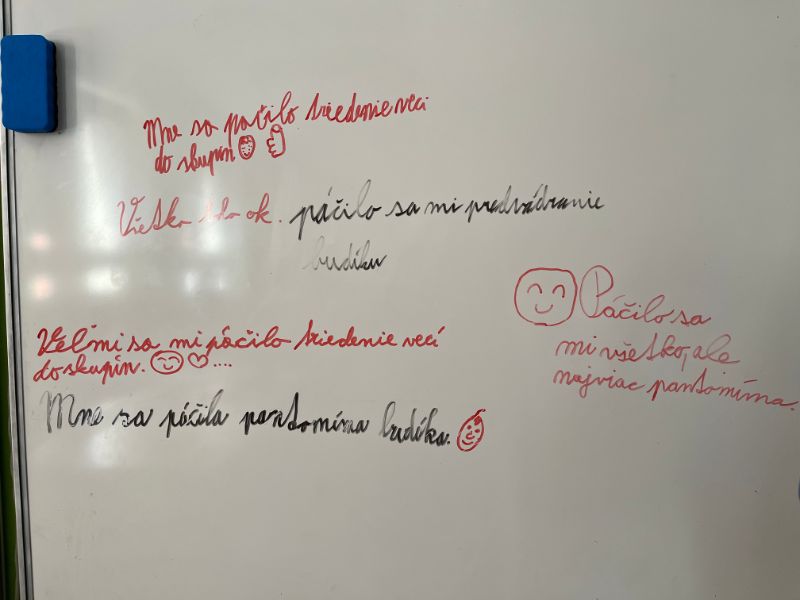 Mne sa páčilo triedenie veci
do skupín
Všetko ok. páčilo sa mi predvádzanie
budíku
Veľmi sa mi páčilo triedenie vecí
do skupín. ....
Páčilo sa
mi všetko, ale
najviac pantomíma.
Mne sa páčila pantomíma budíka.